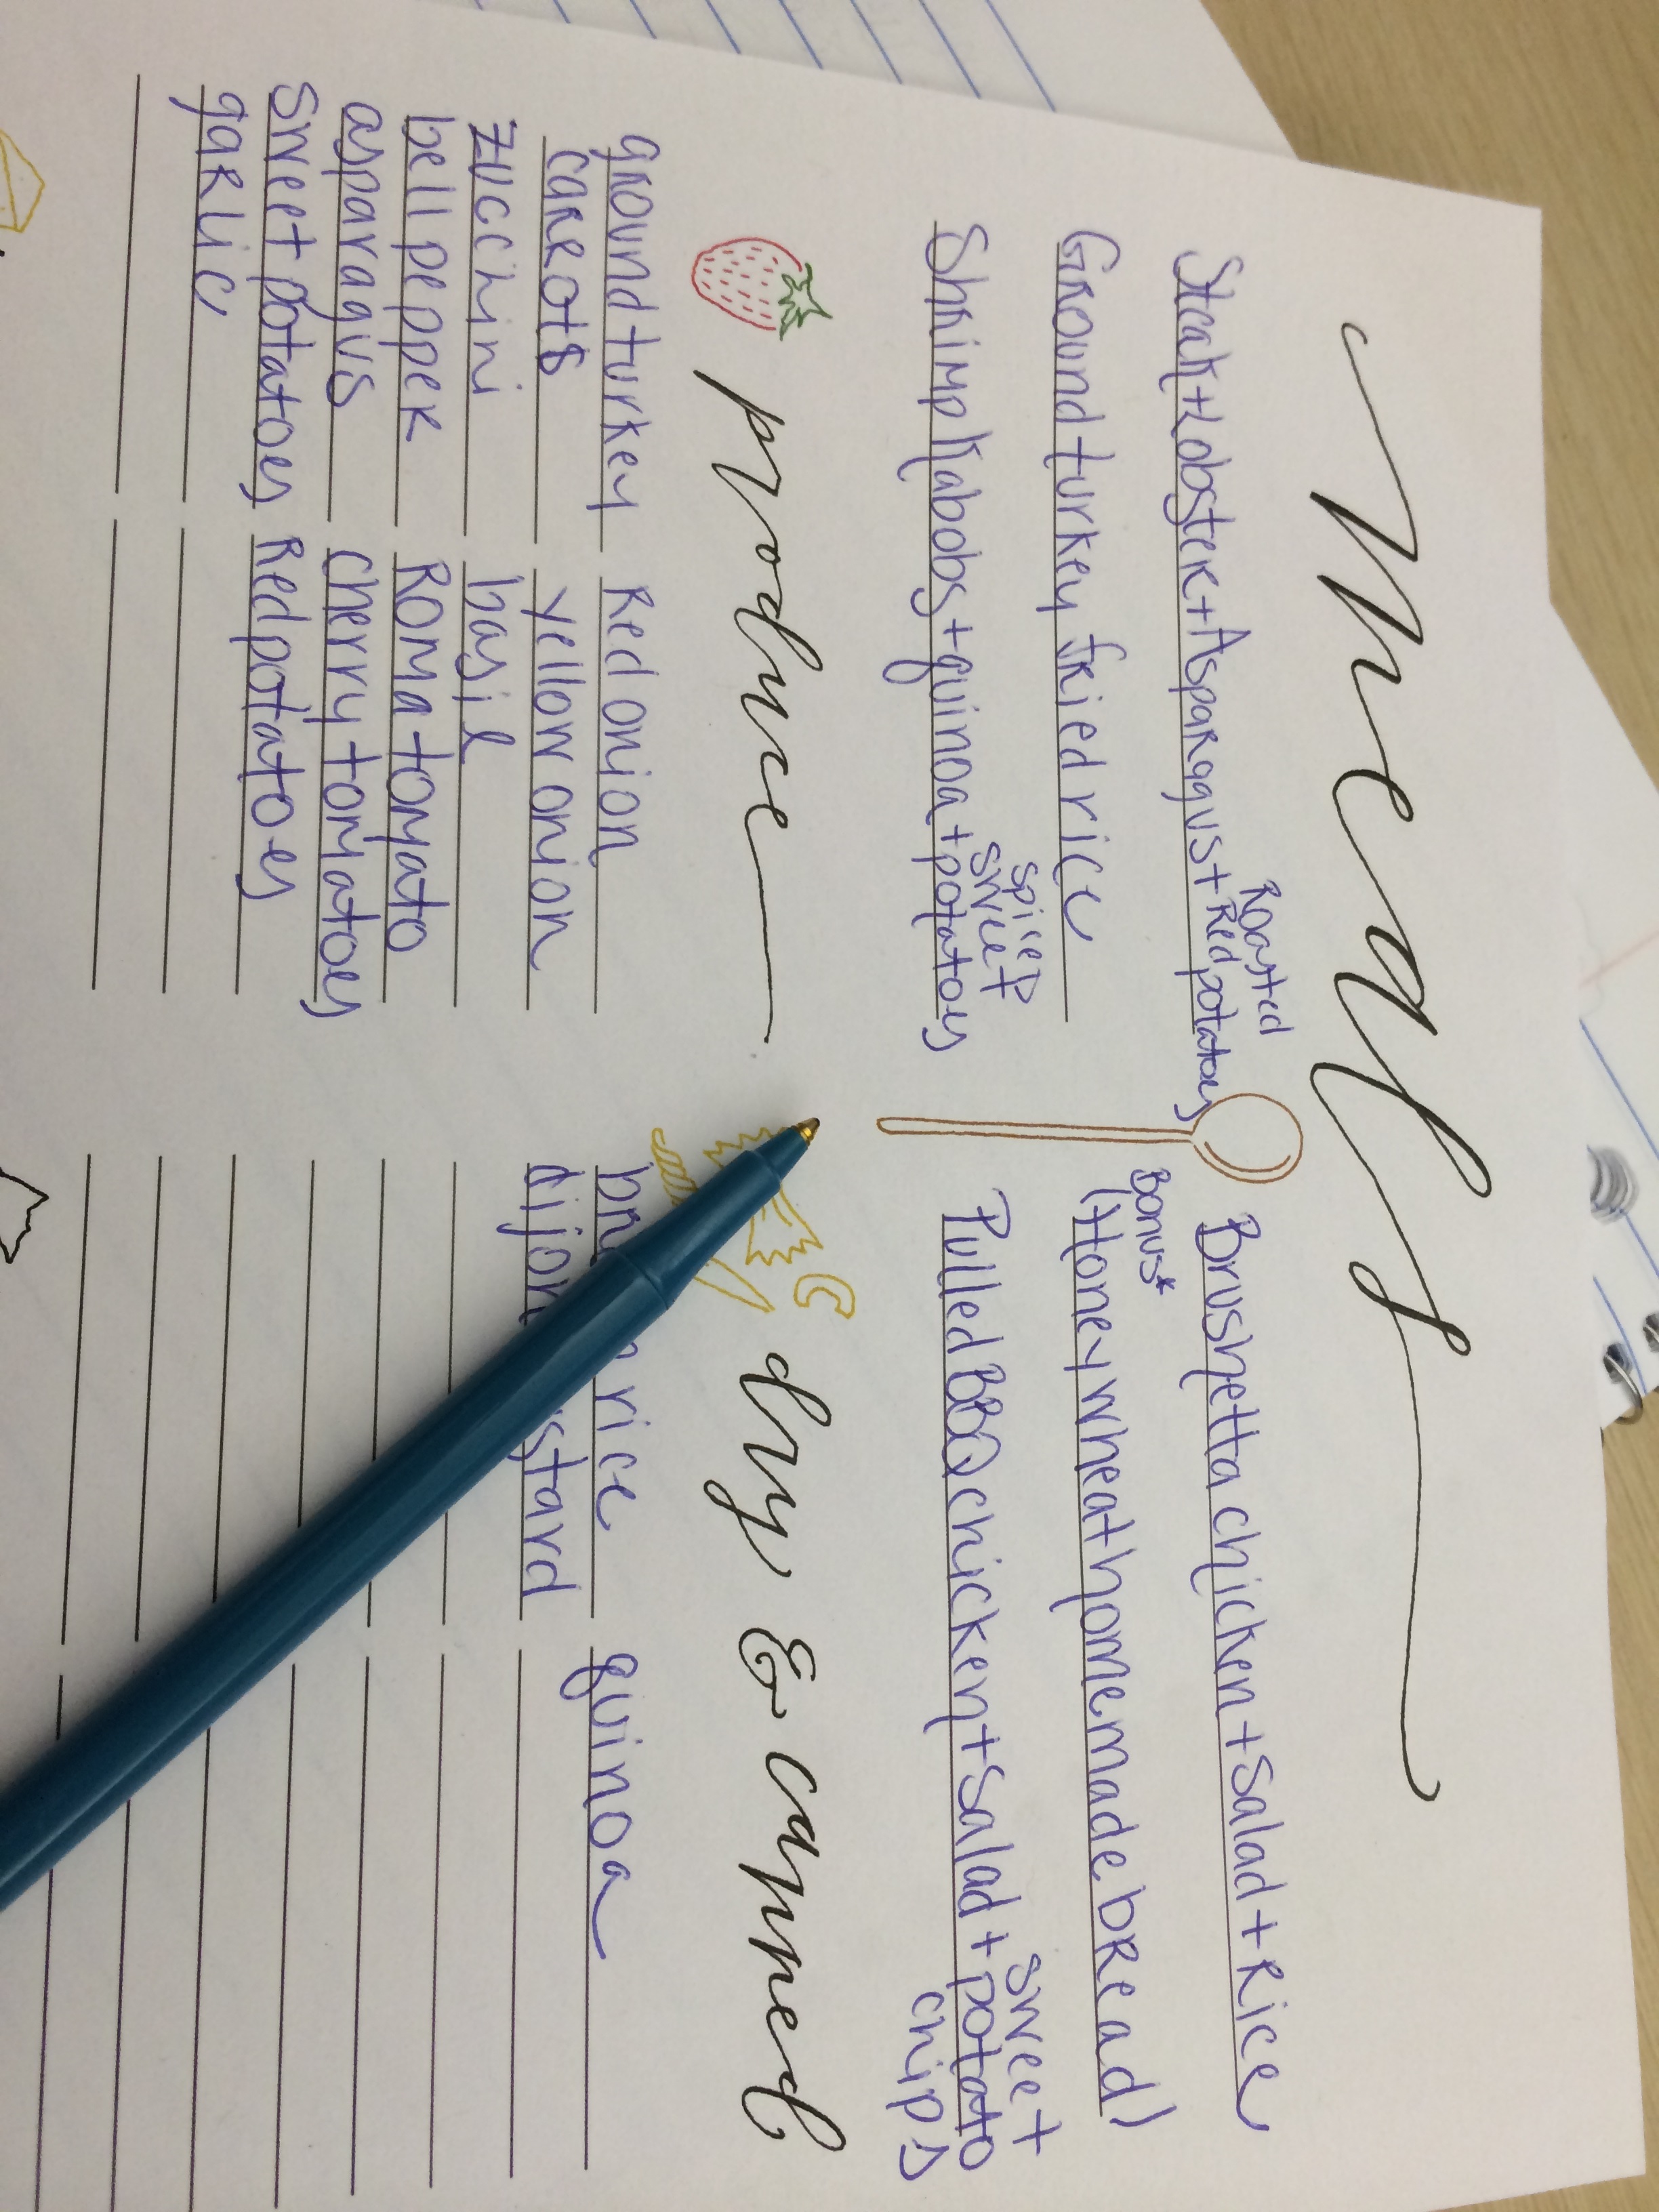 Meals
Steak + Lobster + Asparagus + Roasted Red potatoes
Ground turkey fried rice
Shrimp Kabobs + quinoa + spiced sweet potatoes
Brushetta chicken + Salad + Rice
Bonus*
(Honey wheat homemade bread)
Pulled BBQ chicken + Salad + sweet potato chips
produce
ground turkey
carrots
zucchini
bell pepper
asparagus
sweet potatoes
garlic
Red onion
yellow onion
basil
Roma tomato
cherry tomatoes
Red potatoes
dry & canned
rice
dijon
quinoa